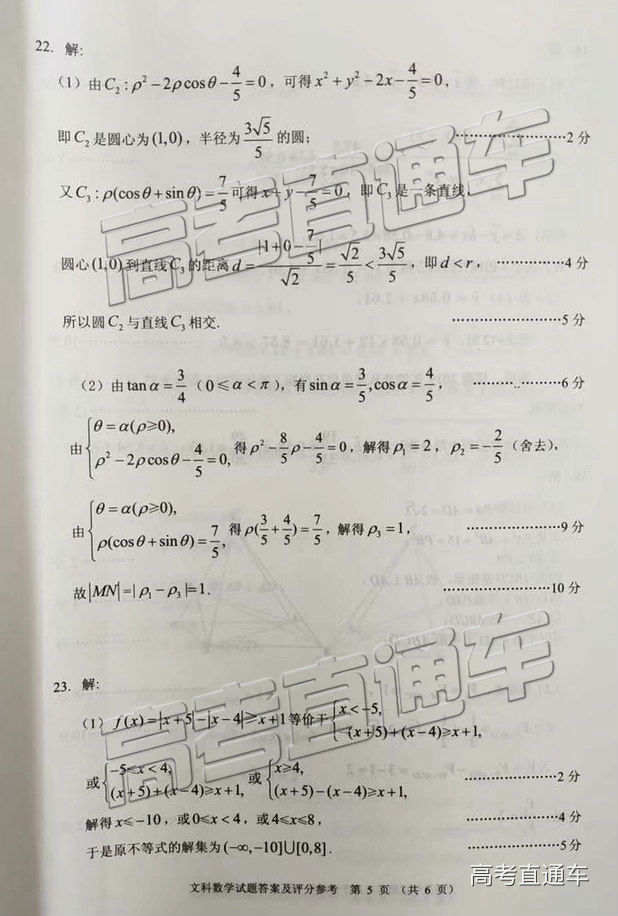 22. 解:
(1) 由 C₂ : ρ² − 2ρcosθ − 4/5 = 0, 可得 x² + y² − 2x − 4/5 = 0,
即 C₂ 是圆心为 (1,0), 半径为 3√5/5 的圆; ……………………2 分
又 C₃ : ρ(cosθ + sinθ) = 7/5 可得 x + y − 7/5 = 0, 即 C₃ 是一条直线,
圆心 (1,0) 到直线 C₃ 的距离 d = |1+0−7/5|/√2 = √2/5 < 3√5/5, 即 d < r, ……………4 分
所以圆 C₂ 与直线 C₃ 相交. ……………………5 分
(2) 由 tanα = 3/4 (0 ≤ α < π), 有 sinα = 3/5, cosα = 4/5, ……………………6 分
由 { θ = α(ρ≥0), ρ² − 2ρcosθ − 4/5 = 0, 得 ρ² − 8/5 ρ − 4/5 = 0, 解得 ρ₁ = 2, ρ₂ = −2/5 (舍去),
由 { θ = α(ρ≥0), ρ(cosθ + sinθ) = 7/5, 得 ρ(3/5 + 4/5) = 7/5, 解得 ρ₃ = 1, ……………………9 分
故 |MN| = |ρ₁ − ρ₃| = 1. ……………………10 分
23. 解:
(1) f(x) = |x+5| − |x−4| ≥ x+1 等价于 { x < −5, −(x+5)+(x−4) ≥ x+1,
或 { −5≤x<4, (x+5)+(x−4) ≥ x+1, 或 { x≥4, (x+5)−(x−4) ≥ x+1, ……………………2 分
解得 x ≤ −10, 或 0 ≤ x < 4, 或 4 ≤ x ≤ 8, ……………………4 分
于是原不等式的解集为 (−∞,−10]∪[0,8]. ……………………5 分
文科数学试题答案及评分参考 第 5 页 (共 6 页)
高考直通车
高考直通车
高考直通车